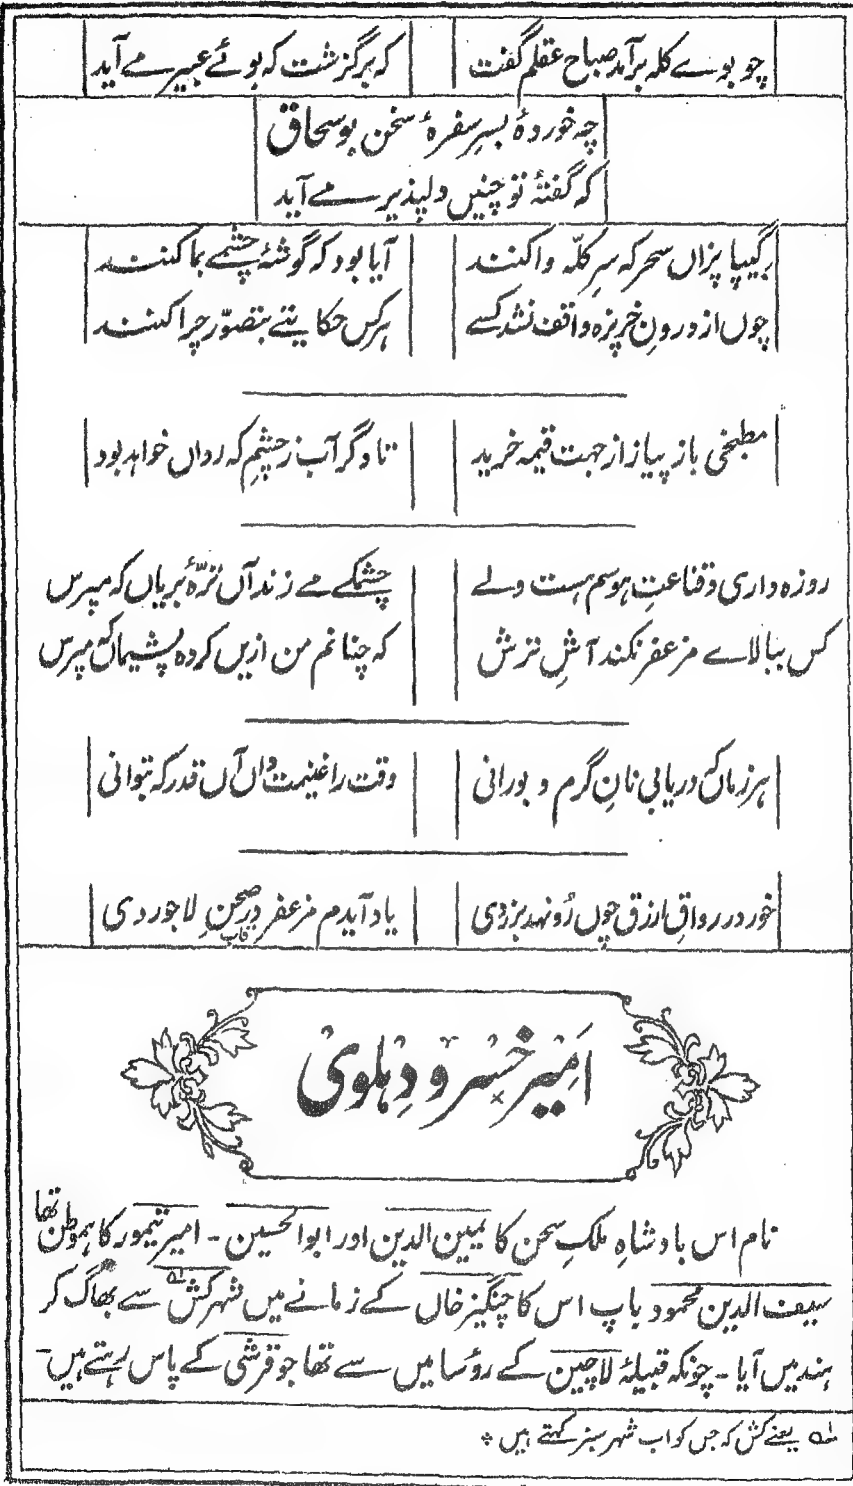 چو بوے کلہ برآمد صباح عقلم گفت کہ برگزشت کہ بوئے عبیر مے آید
چہ خوردۂ بسرِ سفرۂ سخن بوسحاق
کہ گفتۂ تو چنیں دلپذیر مے آید
گیپا پزاں سحر کہ سرِ کلّہ وا کنند آیا بود کہ گوشۂ چشمے بما کنند
چوں از درونِ خربزہ واقف نشد کسے ہرکس حکایتے بتصوّر چرا کنند
مطبخی باز پیاز از جہت قیمہ خرید تا دگر آب ز چشمِ کہ رواں خواہد بود
روزہ داری و قناعتِ ہوسم ہست ولے چشمکے مے زند آں ترّۂ بریاں کہ مپرس
کس ببالاے مزعفر نکند آشِ ترش کہ چنانم من ازیں کردہ پشیماں کہ مپرس
ہر زماں کہ دریابی نانِ گرم و بورانی وقت را غنیمت داں آں قدر کہ بتوانی
خور در رواقِ ازرق چوں رُو نہد بزردی یاد آیدم مزعفر در صحنِ لاجوردی
قاب
امیر خسرو دہلوی
نام اس بادشاہِ ملکِ سخن کا یمین الدین اور ابوالحسین - امیر تیمور کا ہموطن تھا
سیف الدین محمود باپ اس کا چنگیز خاں کے زمانے میں شہر کش لہ سے بھاگ کر
ہند میں آیا - چونکہ قبیلۂ لاچین کے رؤسا میں سے تھا جو قرشی کے پاس رہتے ہیں -
لہ یعنے کش کہ جس کو اب شہر سبز کہتے ہیں *